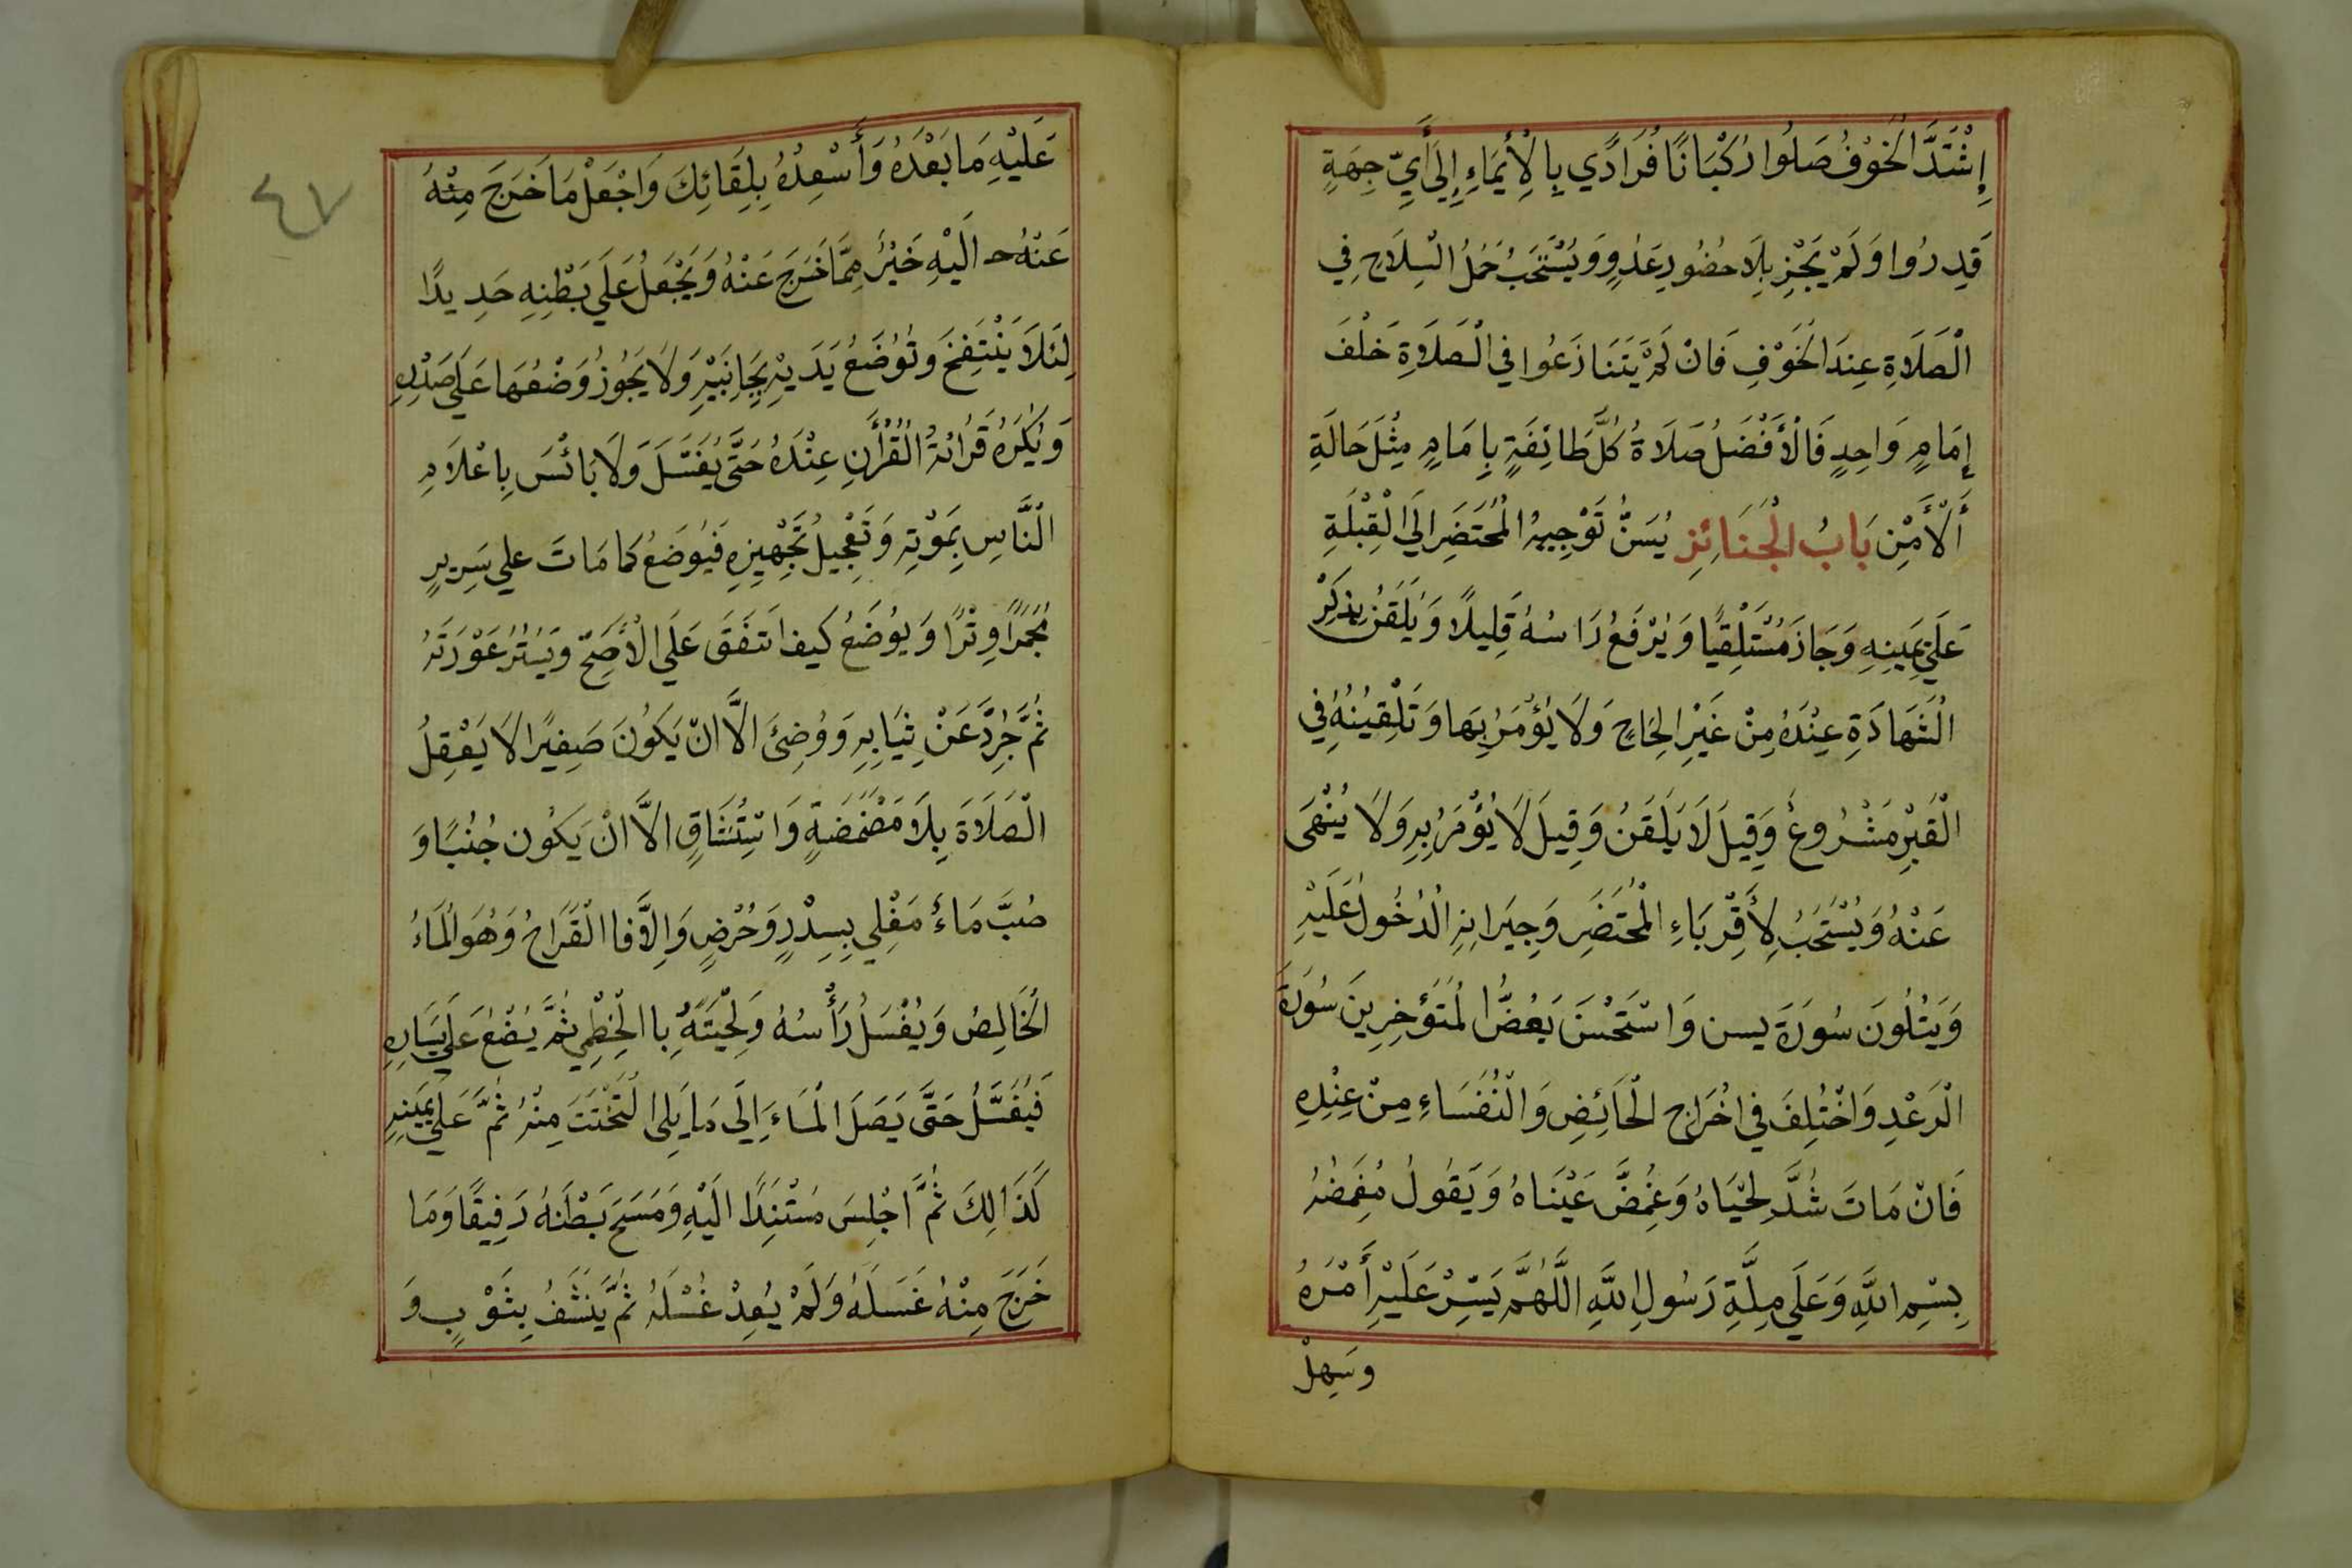 إِشْتَدَّ الْخَوْفُ صَلُوا رُكْبَانًا فُرَادًي بِالْأِيمَاءِ إِلَي أَيِّ جِهَةٍ
قَدِرُوا وَلَمْ يَجُزِ بِلَا حُضُورِ عَدُوٍ وَيُسْتَحَبُ حَمْلُ السِّلَاحِ فِي
الْصَلَاةِ عِندَ الْخَوْفِ فَانْ لَمْ يَتَنَازَعُوا فِي الْصَلَوةِ خَلْفَ
إِمَامٍ وَاحِدٍ فَالْأَفْضَلُ صَلَاةُ كُلَّ طَائِفَةٍ بِإِمَامٍ مِثْلَ حَالَةِ
أَلْأَمْنِ بَابُ الْجَنَائِزِ يُسَنُّ تَوْجِيهُ الْمُحْتَضَرِ الَي الْقِبْلَةِ
عَلَي يَمِينِهِ وَجَازَ مُسْتَلْقِيًا وَيُرْفَعُ رَاسُهُ قَلِيلًا وَيُلَقَنُ بِذِكْرِ
الْشَهَادَةِ عِنْدَهُ مِنْ غَيْرِ الِحَاحٍ وَلَا يُؤْمَرُ بِهَا وَتَلْقِيْنُهُ فِي
الْقَبْرِ مَشْرُوعٌ وَقِيلَ لَا يَلَقَنُ وَقِيلَ لَا يُؤْمَرُ بِهِ وَلَا يُنْهَى
عَنْهُ وَيُسْتَحَبُ لِأَقْرِبَاءِ الْمُحْتَضَرِ وَجِيَرانِهِ الْدُخُولُ عَلَيْهِ
وَيَتْلُونَ سُورَةَ يسن وَاسْتَحْسَنَ بَعْضُ الْمُتَؤَخِرِينَ سُورَةَ
الْرَعْدِ وَاخْتُلِفَ فِي اخْرَاجِ الْحَائِضِ وَالْنُفَسَاءِ مِنْ عِنْدِهِ
فَانْ مَاتَ شُدَّ لِحْيَاهُ وَغُمِضَّ عَيْنَاهُ وَيَقُولُ مُغَمِضُهُ
بِسْمِ اللَّهِ وَعَلَي مِلَّةِ رَسُولِ اللَّهِ اللَّهُمَّ يَسِّرْ عَلَيْهِ أَمْرَهُ
وسَهِلْ
٤٧
عَلَيْهِ مَا بَعْدَهُ وَأَسْعِدْهُ بِلِقَائِكَ وَاجْعَلْ مَا خَرَجَ مِنْهُ
عَنْهُ الَيْهِ خَيْرً مِمَّا خَرَجَ عَنْهُ وَيَجْعَلُ عَلَي بَطْنِهِ حَدِيدًا
لِئَلَا يَنْتَفِخَ وَتُوضَعُ يَدَيْهِ بِجَانِبَيْهِ وَلَا يَجُوزُ وَضْعُهَا عَلَي صَدْرِهِ
وَيُكْرَهُ قَرَائَةُ الْقُرْأَنِ عِنْدَهُ حَتَّى يُغَسَّلَ وَلَا بَائْسَ بِاعْلَامِ
الْنَّاسِ بِمَوْتِهِ وَتَعْجِيلُ تَجْهِيزِهِ فَيُوضَعُ كَمَا مَاتَ علي سَرِيرٍ
مُجَمَّرًا وِتْرًا وَيوُضَعُ كَيف اتَفَقَ عَلَي الْأَصَحِّ وَيَسْتُرُ عَوْرَتَهُ
ثُمَّ جُرِّدَّ عَنْ ثِيَابِهِ وَوُضِئَ الَّا انْ يَكُونَ صَغِيرًا لَا يَعْقِلُ
الْصَلَاةَ بِلَا مَضْمَضَةٍ وَاسْتِنْشَاقٍ الَّا انْ يَكُون جُنُبًا وَ
صُبَّ مَاءٌ مَغْلِي بِسِدْرٍ وَحُرْضٍ وَالِاَّ فاالْقَرَاحُ وَهُوَ الْمَاءُ
الْخَالِصُ وَيُغْسَلُ رَأْسُهُ وَلِحْيَتَهُ بِاالْخِطْمِي ثُمَّ يُضْعُ عَلَي يَسَارِهِ
فَيُغَسَّلُ حَتَّى يَصَلَ الْمَاءَ إِلَي مَا يَلِى الْتَخْتَ مِنْهُ ثُمَّ عَلَي يَمِينِهِ
كَذَالِكَ ثُمَّ اجْلِسَ مُسْتَنِدًا الَيْهِ وَمَسَحَ بَطْنَهُ رَفِيقًا وَمَا
خَرَجَ مِنْهُ غَسَلَهُ وَلَمْ يُعِدْ غُسْلَهُ ثُمَّ يَنَشَفُ بِثَوْبٍ وَ